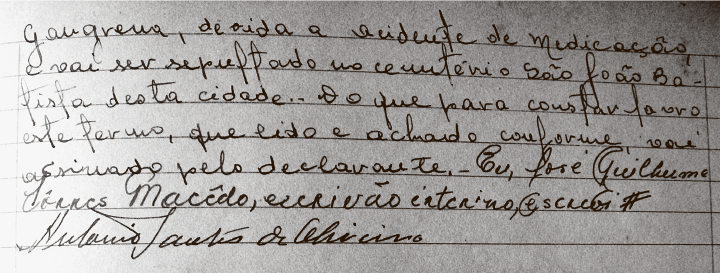 Gangrena, devida a acidente de medicação,
e vai ser sepultado no cemitério São João Ba-
tista desta cidade.- Do que para constar lavro
este termo, que lido e achado conforme, vai
assinado pelo declarante.- Eu, José Guilherme
Tôrres Macêdo, escrivão interino, escrevi #
Antonio Santos de Oliveira